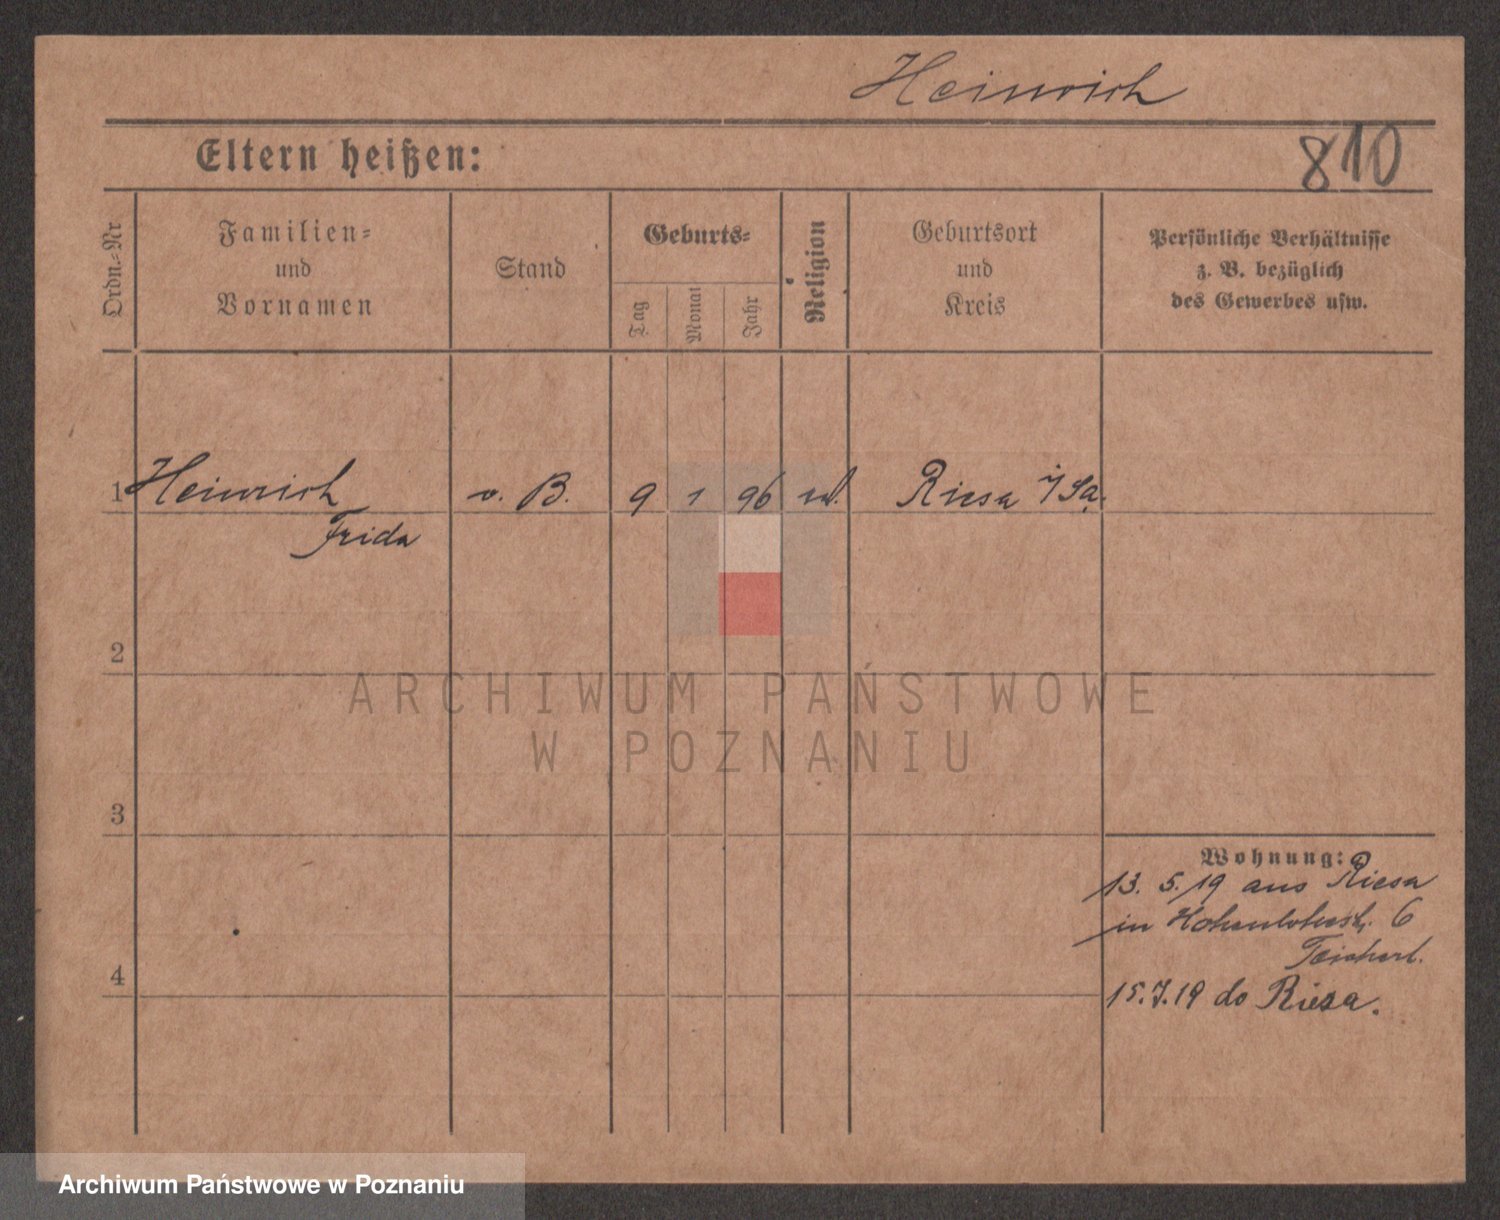 Heinrich
Eltern heißen:
810
Ordn.-Nr
Familien-
und
Vornamen
Stand
Geburts-
Tag
Monat
Jahr
Religion
Geburtsort
und
Kreis
Persönliche Verhältnisse
z. B. bezüglich
des Gewerbes usw.
1 Heinrich v. B. 9 1 96 Riesa i/Sa.
Frida
2
ARCHIWUM PAŃSTWOWE
W POZNANIU
3
Wohnung:
13. 5. 19 aus Riesa
in Hohenlohestr. 6
Teichert.
4
15.7.19 do Riesa.
Archiwum Państwowe w Poznaniu